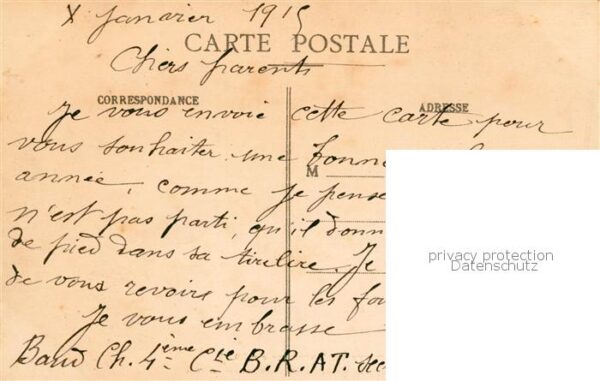 X Janvier 1915
CARTE POSTALE
Chers parents
CORRESPONDANCE
ADRESSE
Je vous envoie cette carte pour
vous souhaiter une bonne
M
année, comme je pense
n'est pas parti, qu'il donn
de pied dans sa tirelire. Je
de vous revoire pour les
Je vous embrasse
Baud Ch. 4ème Cie B.R.AT. sec
privacy protection
Datenschutz